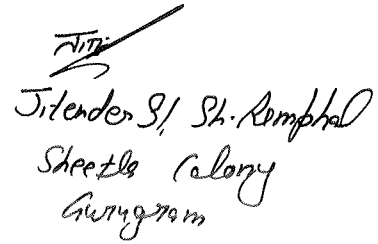 Jitender S/ Sh. Ramphal
Sheetla Colony
Gurugram